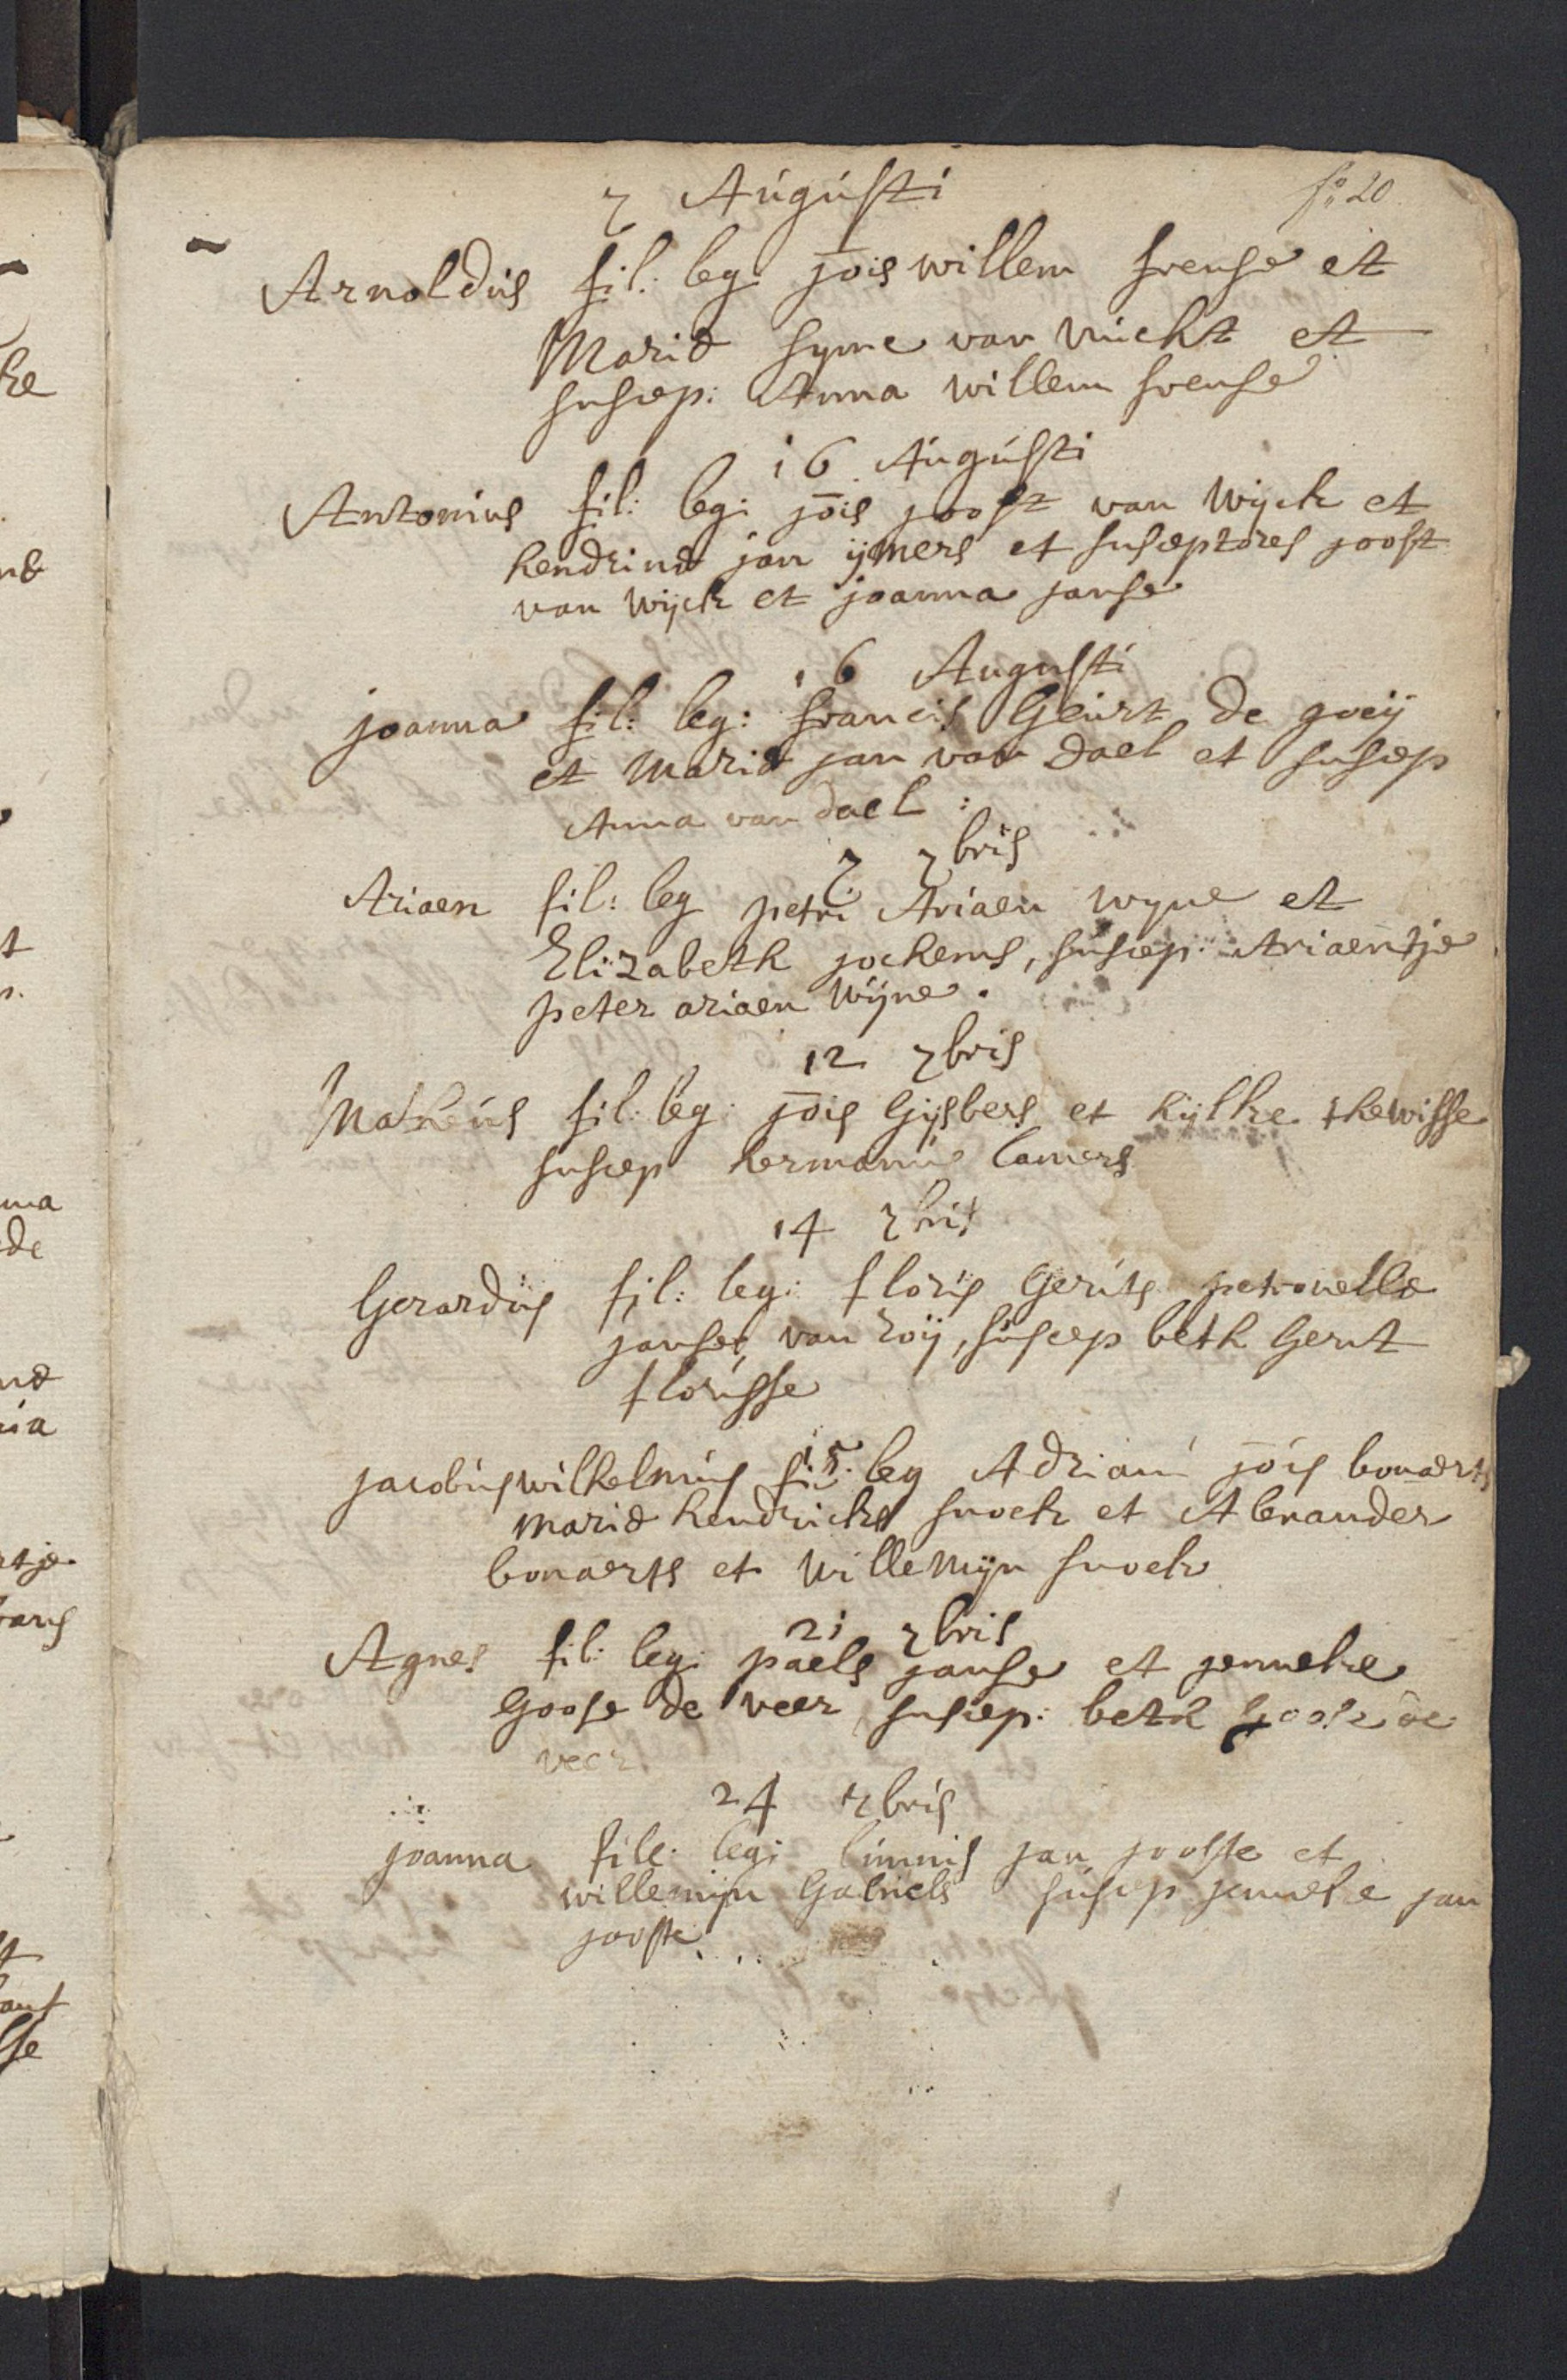 fo: 20
7 Augústi
Arnoldus fil: leg: jois willem svense et
Maria syme van vúcht et
suscep: Anna willem svense
16 Augústi
Antonius fil: leg: jois joost van wijck et
hendrina jan ijmers et susceptores joost
van wijck et joanna janse
16 Augusti
joanna fil: leg: francis Geúrt de goeij
et maria jan van dael et suscep
Anna van dael:
7 7bris
Ariaen fil: leg petri Ariaen wyne et
Elizabeth jochems, súscep: Ariaentje
peter ariaen wijne.
12 7bris
Matheús fil: leg: jois Gijsbers et hijlke thewisse
suscep hermanús lamers
14 7bris
Gerardús fil: leg: floris Gerits petronella
janse van roij, súscep beth Gerit
florisse
15
jacobús wilhelmús fil: leg Adriani jois bonaerts
maria hendricks snoeck et Alexander
bonaerts et willemijn snoeck
21 7bris
Agnes fil: leg: paels janse et jenneke
Goose de veer suscep: beth Goose de
veer
24 7bris
joanna file: leg: jan jooste et
willemijn Gabriels súscep jenneke jan
jooste